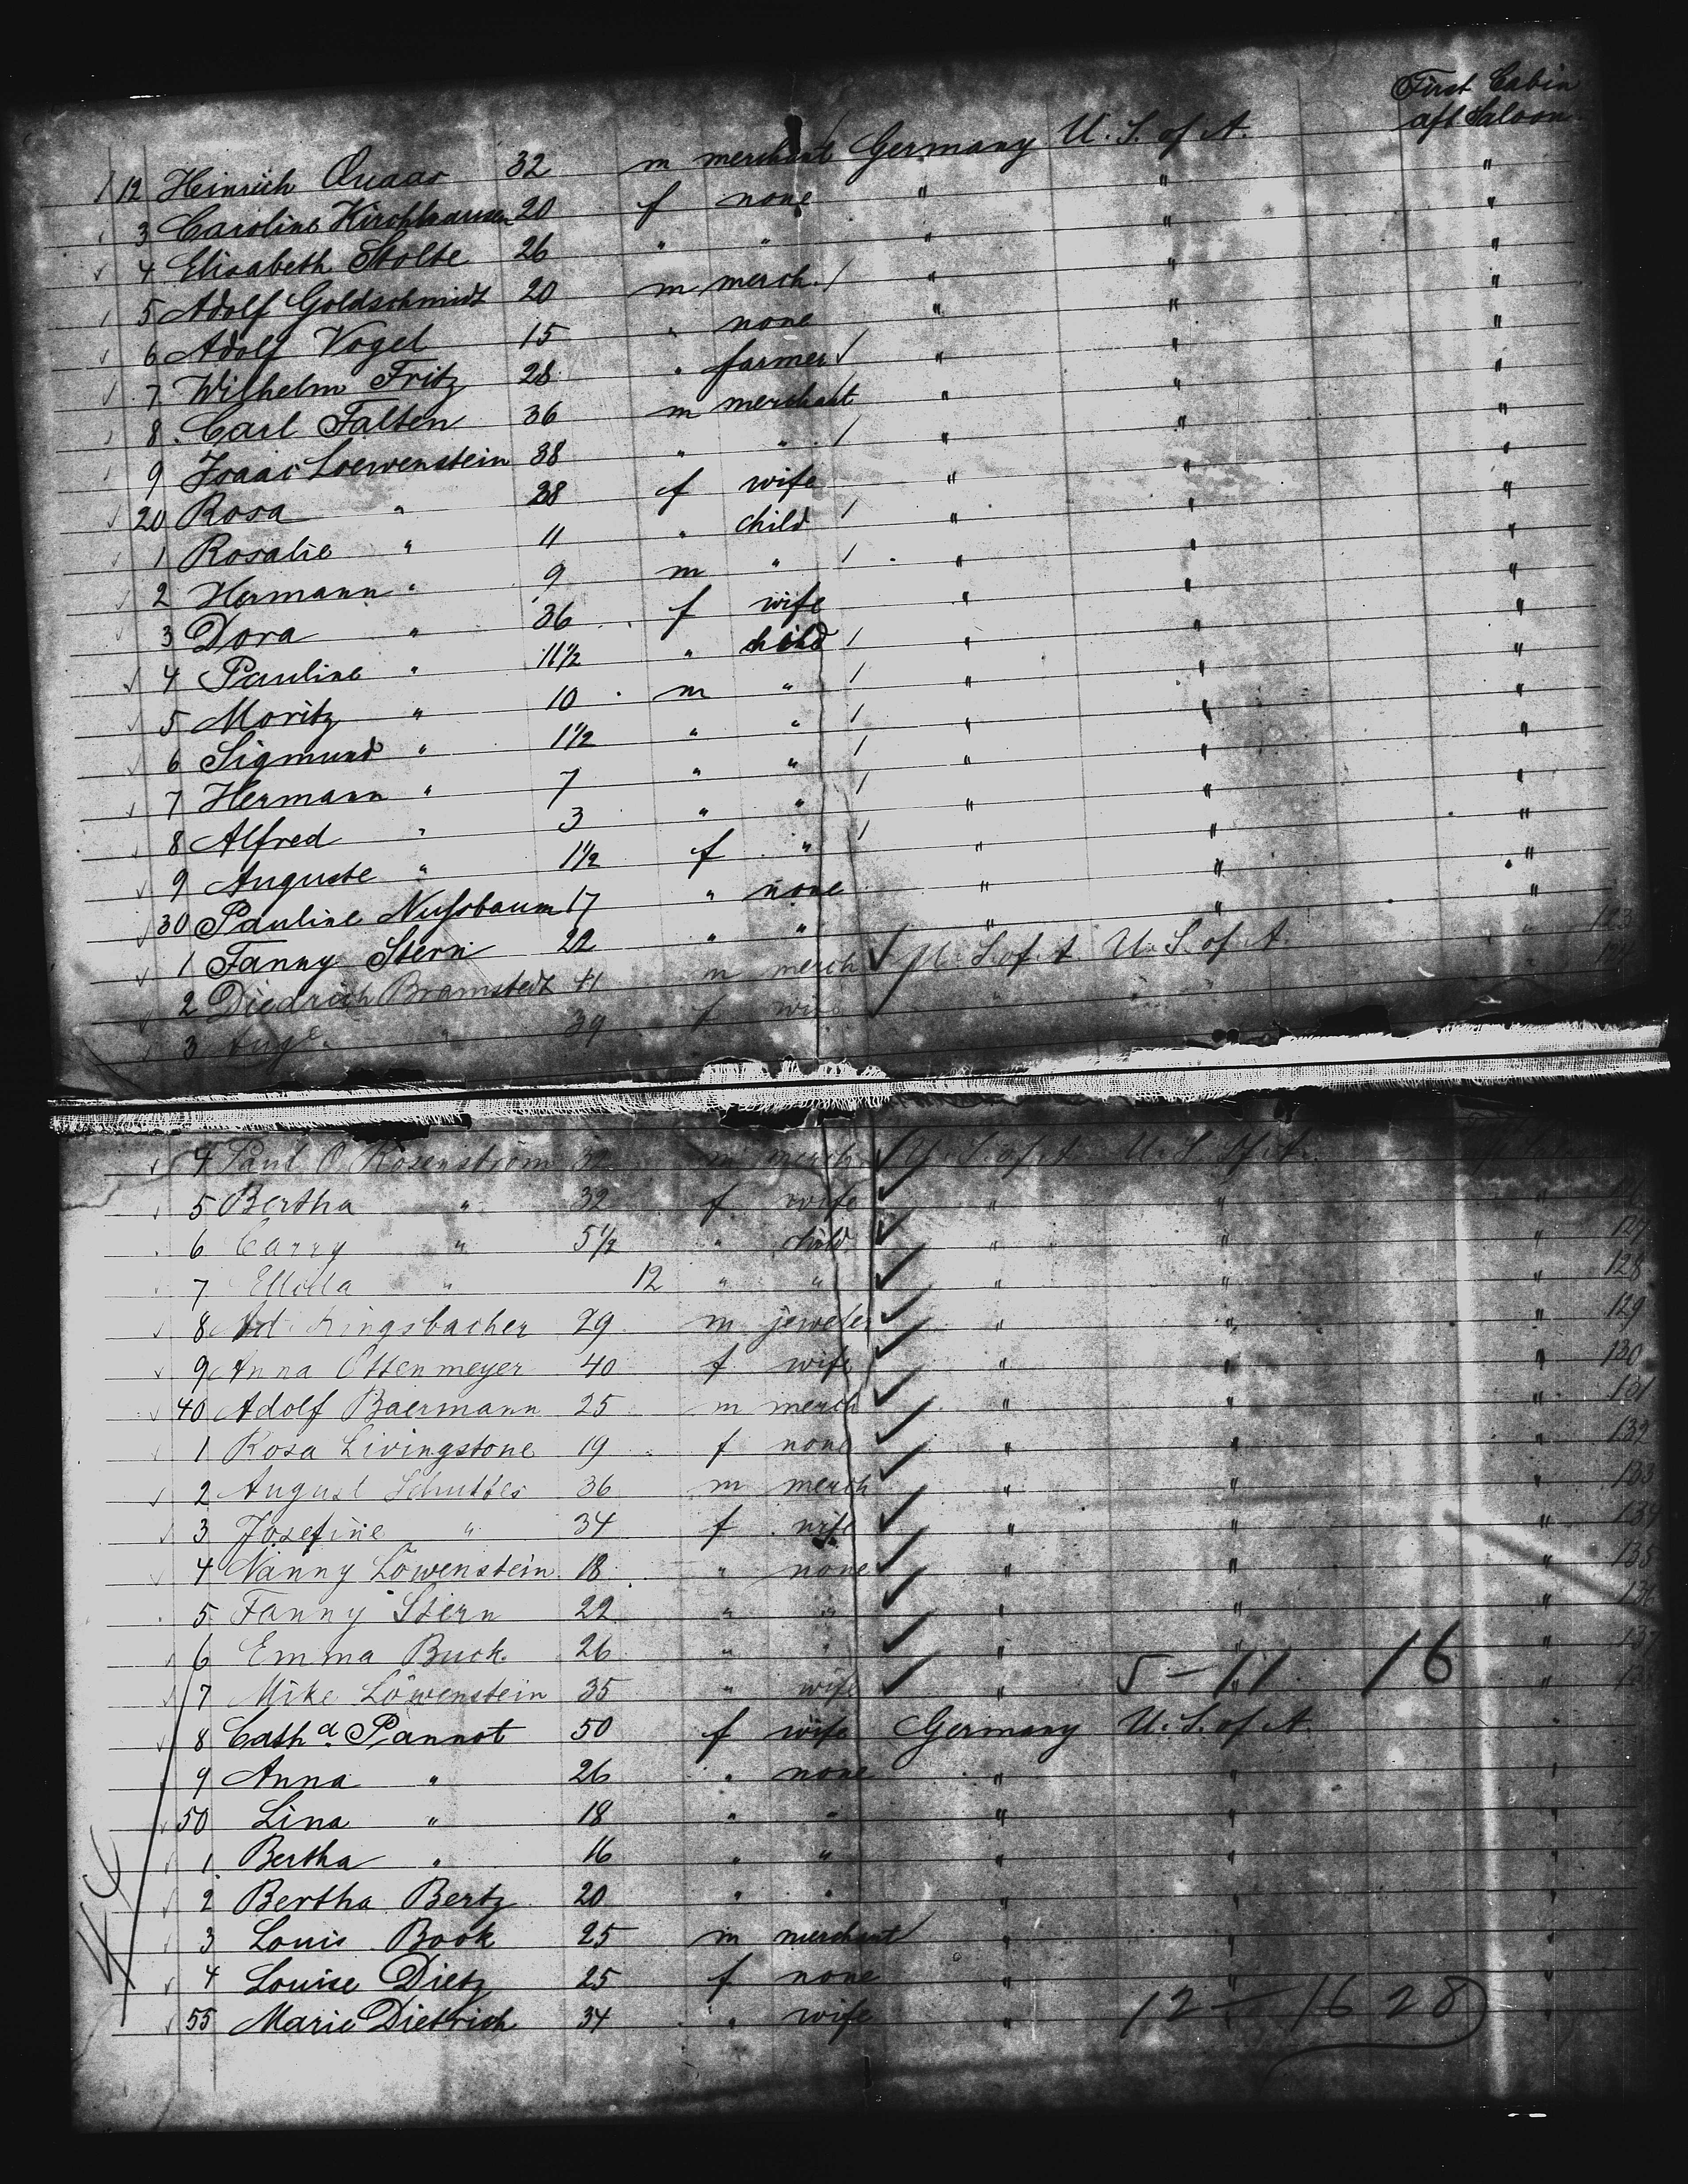 First Cabin
aft Saloon
12 Heinrich Quaas 32 m merchant Germany U. S. of A.
3 Caroline Kirchhausen 20 f none " " "
4 Elisabeth Stolte 26 " " " " "
5 Adolf Goldschmidt 20 m merch. " " "
6 Adolf Vogel 15 " none " " "
7 Wilhelm Fritz 28 " farmer " " "
8 Carl Falten 36 m merchant " " "
9 Isaac Loewenstein 38 " " " " "
20 Rosa " 28 f wife " " "
1 Rosalie " 11 " child " " "
2 Hermann " 9 m " " " "
3 Dora " 36 f wife " " "
4 Pauline " 11 1/2 " child " " "
5 Moritz " 10 m " " " "
6 Sigmund " 1 1/2 " " " " "
7 Hermann " 7 " " " "
8 Alfred " 3 " " " " "
9 Auguste " 1 1/2 f " " " "
30 Pauline Nussbaum 17 " none " " "
1 Fanny Stern 22 " " " " "
2 Diedrich Bramstedt 41 m merch U. S. of A. U. S. of A. " 123
3 Auge. " 39 f wife " " " 124
4 Paul O. Rosenstrom 32 m merch U. S. of A. U. S. of A.
5 Bertha " 32 f wife " " "
6 Carry " 5 1/2 " child " " " 127
7 " 12 " " " " " 128
8 Ad. Kingsbacher 29 m jeweler " " " 129
9 Anna Ottenmeyer 40 f wife " " " 130
40 Adolf Baermann 25 m merch " " " 131
1 Rosa Livingstone 19 f none " " " 132
2 August Schuttes 36 m merch " " " 133
3 Josefine " 34 f wife " " " 134
4 Nanny Löwenstein 18 " none " " " 135
5 Fanny Stern 22 " " " " " 136
6 Emma Buck 26 " " " " " 137
5 - 11 16
7 Mike Löwenstein 35 " wife " " "
8 Cath.a Pannot 50 f wife Germany U. S. of A. "
9 Anna " 26 " none " " "
50 Lina " 18 " " " " "
1 Bertha " 16 " " " " "
2 Bertha Bertz 20 " " " " "
3 Louis Book 25 m merchant " " "
4 Louise Dietz 25 f none " " "
55 Marie Dietrich 34 " wife " "
12 - 16 28